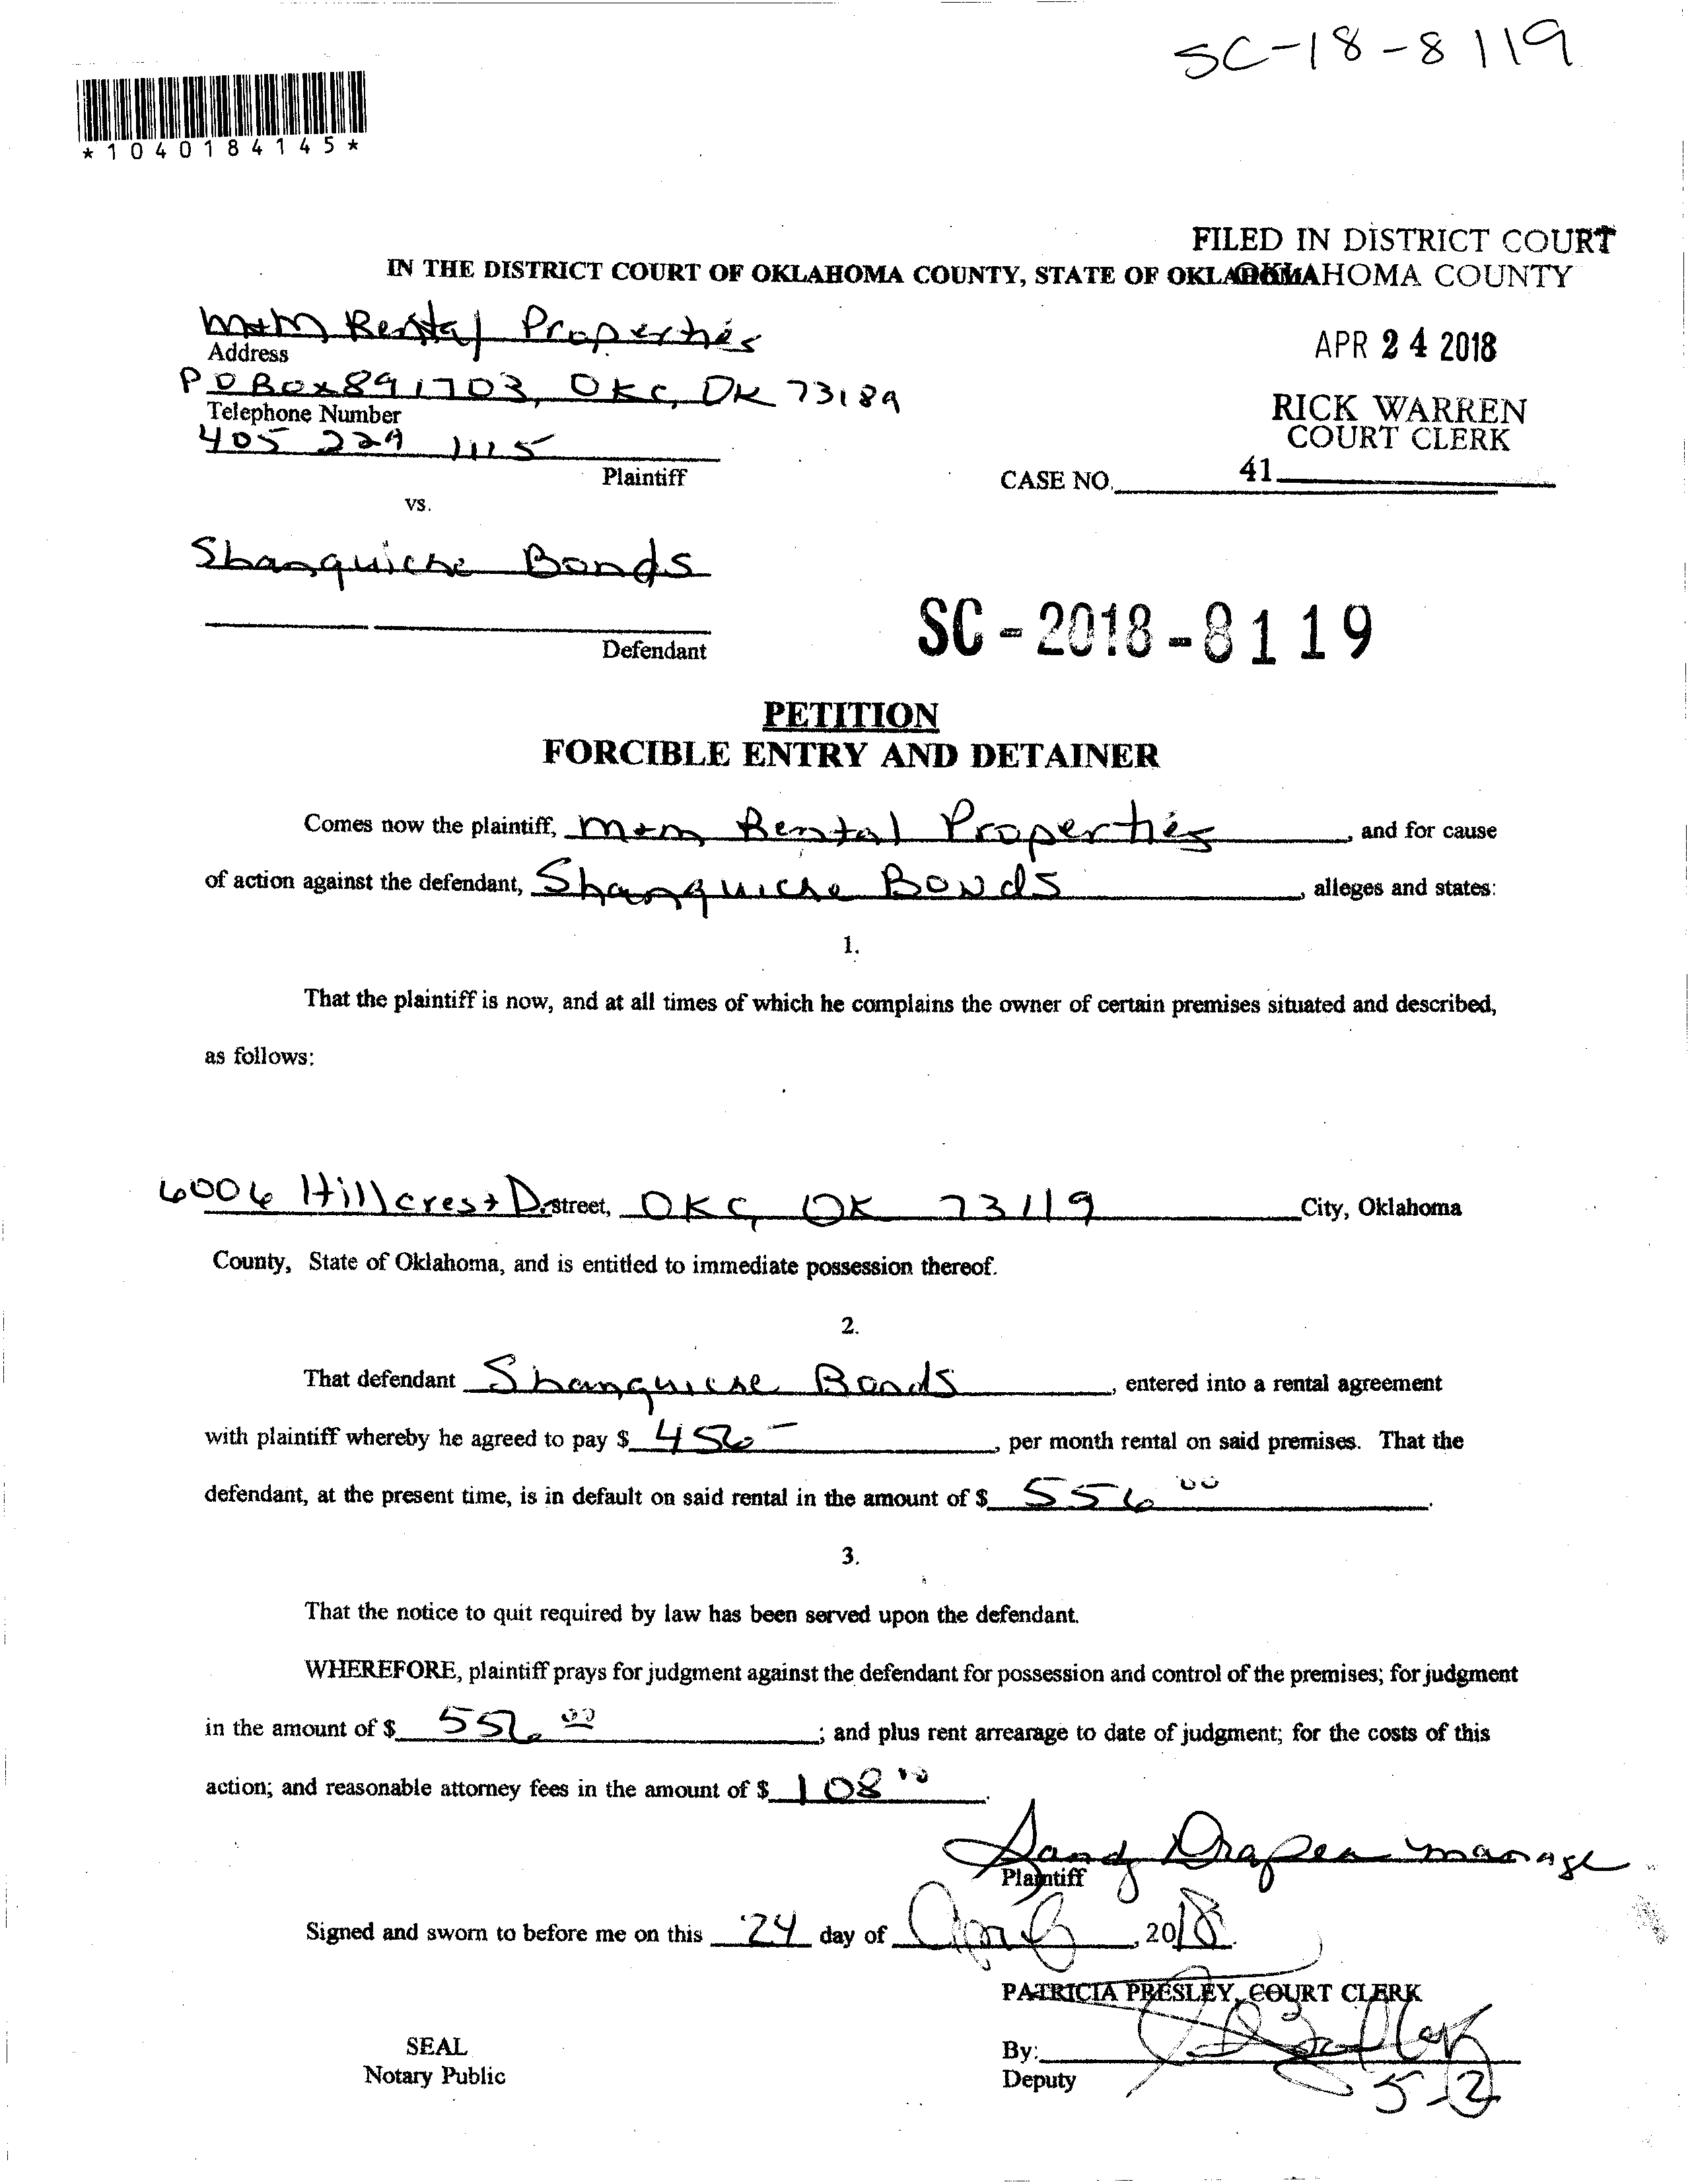 SC-18-8119
*1040184145*
FILED IN DISTRICT COURT
OKLAHOMA COUNTY
IN THE DISTRICT COURT OF OKLAHOMA COUNTY, STATE OF OKLAHOMA
M+M Rental Properties
APR 24 2018
Address
P O Box 891703, OKC, OK 73189
RICK WARREN
COURT CLERK
Telephone Number
405 229 1115
Plaintiff
CASE NO. 41
vs.
Shanquiche Bonds
SC-2018-8119
Defendant
PETITION
FORCIBLE ENTRY AND DETAINER
Comes now the plaintiff, M+M Rental Properties, and for cause
of action against the defendant, Shanquiche Bonds, alleges and states:
1.
That the plaintiff is now, and at all times of which he complains the owner of certain premises situated and described,
as follows:
6006 Hillcrest Dr street, OKC, OK 73119 City, Oklahoma
County, State of Oklahoma, and is entitled to immediate possession thereof.
2.
That defendant Shanquiche Bonds, entered into a rental agreement
with plaintiff whereby he agreed to pay $ 456-, per month rental on said premises. That the
defendant, at the present time, is in default on said rental in the amount of $ 556 00.
3.
That the notice to quit required by law has been served upon the defendant.
WHEREFORE, plaintiff prays for judgment against the defendant for possession and control of the premises; for judgment
in the amount of $ 556 00; and plus rent arrearage to date of judgment; for the costs of this
action; and reasonable attorney fees in the amount of $ 108 00.
Sandy Draper manage
Plaintiff
Signed and sworn to before me on this 24 day of April, 2018.
PATRICIA PRESLEY, COURT CLERK
SEAL
By:
Notary Public
Deputy